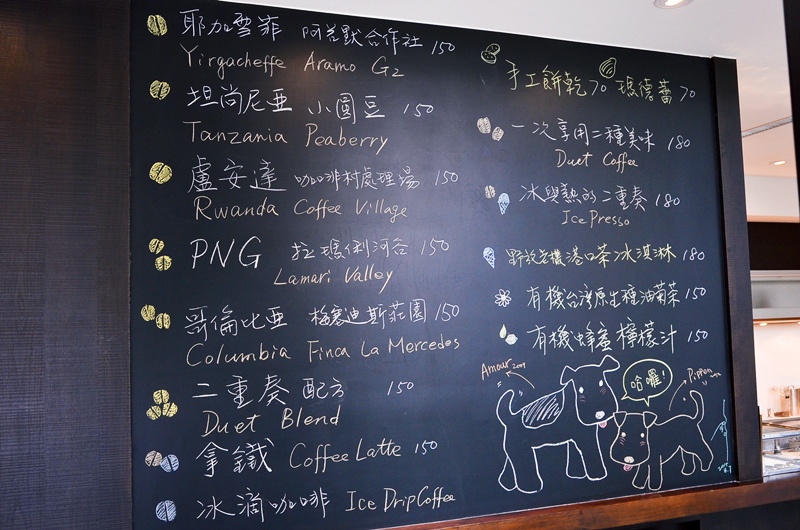 耶加雪菲 阿若默合作社 150
Yirgacheffe Aramo G2
坦尚尼亞 小圓豆 150
Tanzania Peaberry
盧安達 咖啡村處理場 150
Rwanda Coffee Village
PNG 拉瑪俐河谷 150
Lamari Valley
哥倫比亞 梅賽迪斯莊園 150
Columbia Finca La Mercedes
二重奏 配方 150
Duet Blend
拿鐵 Coffee Latte 150
冰滴咖啡 Ice Drip Coffee
手工餅乾 70 瑪德蕾 70
一次享用二種美味 180
Duet Coffee
冰與熱的二重奏 180
Ice Presso
野放有機港口茶冰淇淋 180
有機台灣原生種油菊茶 150
有機蜂蜜檸檬汁 150
Amour
哈囉!